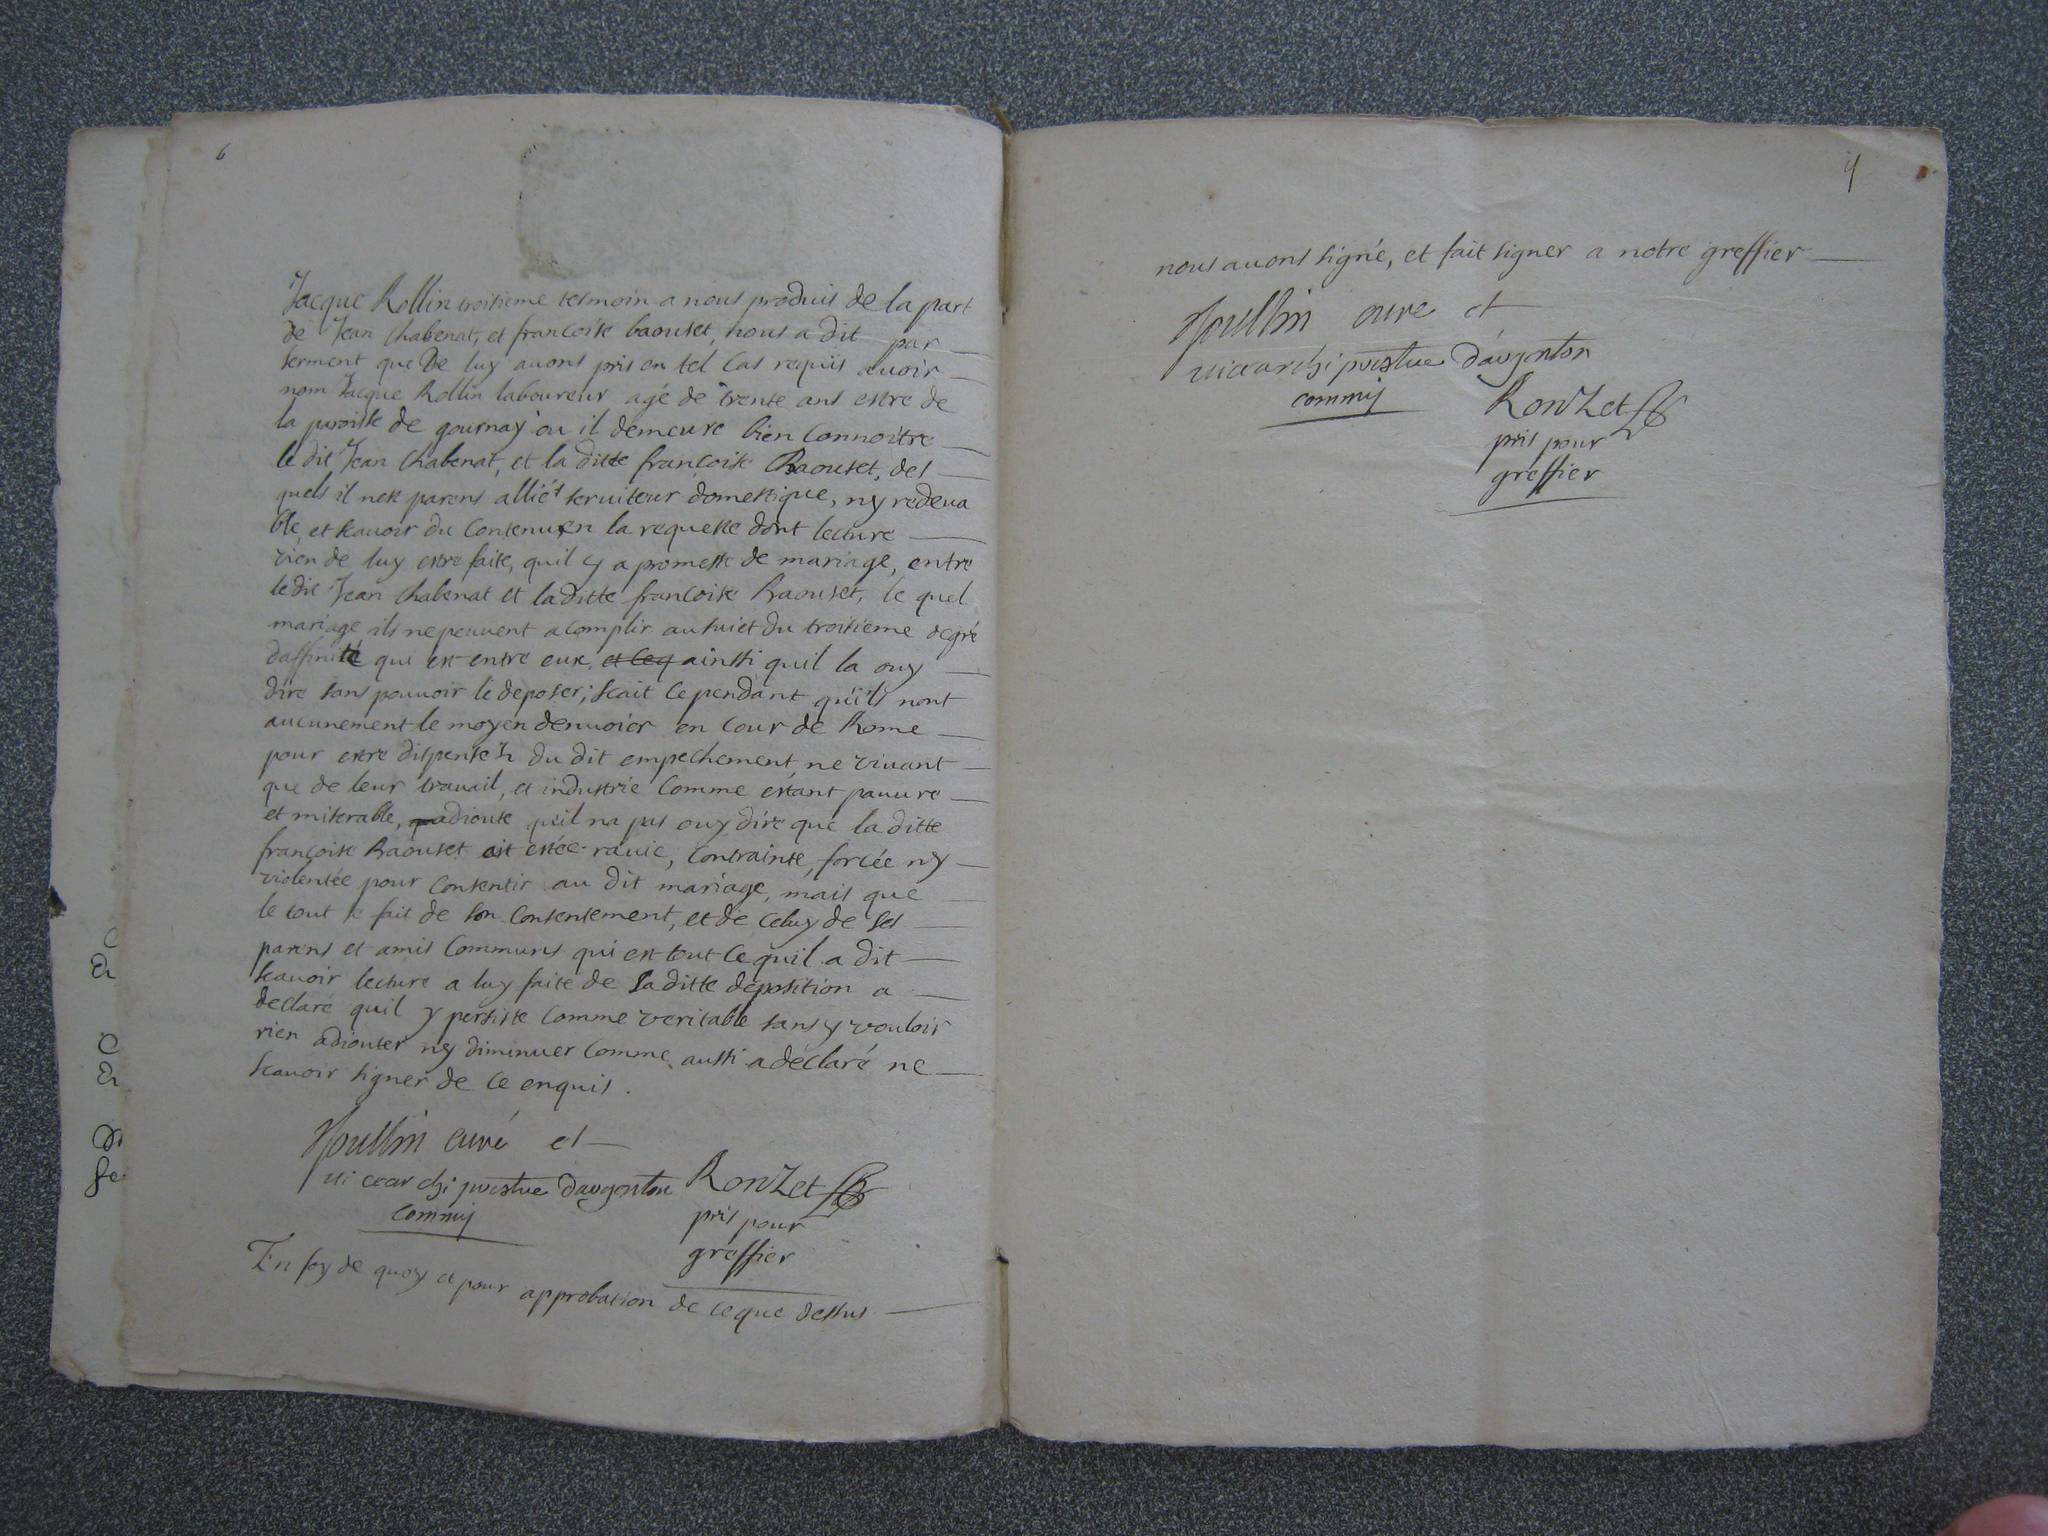 6
Jacque Rollin troisieme tesmoin a nous produis de la part
de Jean Chabenat, et francoise baouset, nous a dit par
serment que De luy auons pris en tel cas requis auoir
nom Jacque Rollin laboureur agé de trente ans estre de
la paroisse de gournay ou il demeure bien connoitre
le dit Jean Chabenat, et la ditte françoise Raouset, des
quels il nest parens alliés seruiteur domestique, ny redeua
ble, et scauoir du contenu en la requeste dont lecture
vien de luy estre faite, quil y a promesse de mariage, entre
le dit Jean Chabenat et la ditte francoise Raouset, le quel
mariage ils ne peuuent acomplir au suiet du troisieme degré
daffinité qui est entre eux, et ceq ainssi quil la ouy
dire sans pouuoir le deposer; scait cependant quils nont
aucunement le moyen denuoier en cour de Rome
pour estre dispenséz du dit empechement, ne viuant
que de leur trauail, et industrie comme estant pauure
et miserable, adioute quil na pas ouy dire que la ditte
françoise Raouset ait estée rauie, contrainte, forcée ny
violentée pour consentir au dit mariage, mais que
le tout se fait de son consentement, et de celuy de ses
parens et amis communs qui est tout ce quil a dit
scauoir lecture a luy faite de sa ditte deposition a
declaré quil y persiste comme veritable sans y vouloir
rien adiouter ny diminuer comme aussi a declaré ne
scauoir signer de ce enquis.
curé et
vicearchiprestre dargenton
commis
Ronzet
pris pour
greffier
En foy de quoy et pour approbation de ce que dessus
nous auons signé, et fait signer a notre greffier
cure et
vicearchiprestre d'argenton
commis
Ronzet
pris pour
greffier